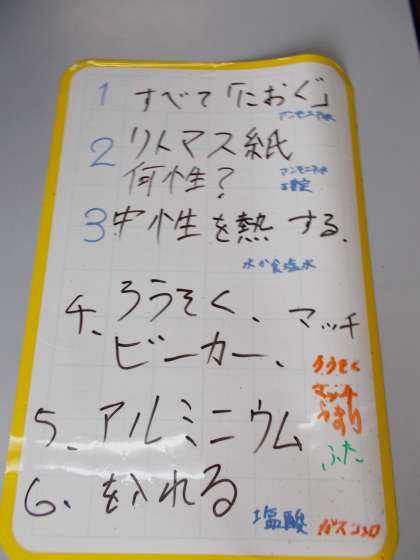 1 すべて「におぐ」
アンモニア水
2 リトマス紙
何性?
アンモニア水
3 中性を熱する.
水か食塩水
4. ろうそく、マッチ
ビーカー、
ろうそく
マッチ
ふた
5. アルミニウム
6. を入れる
塩酸
ガスコンロ